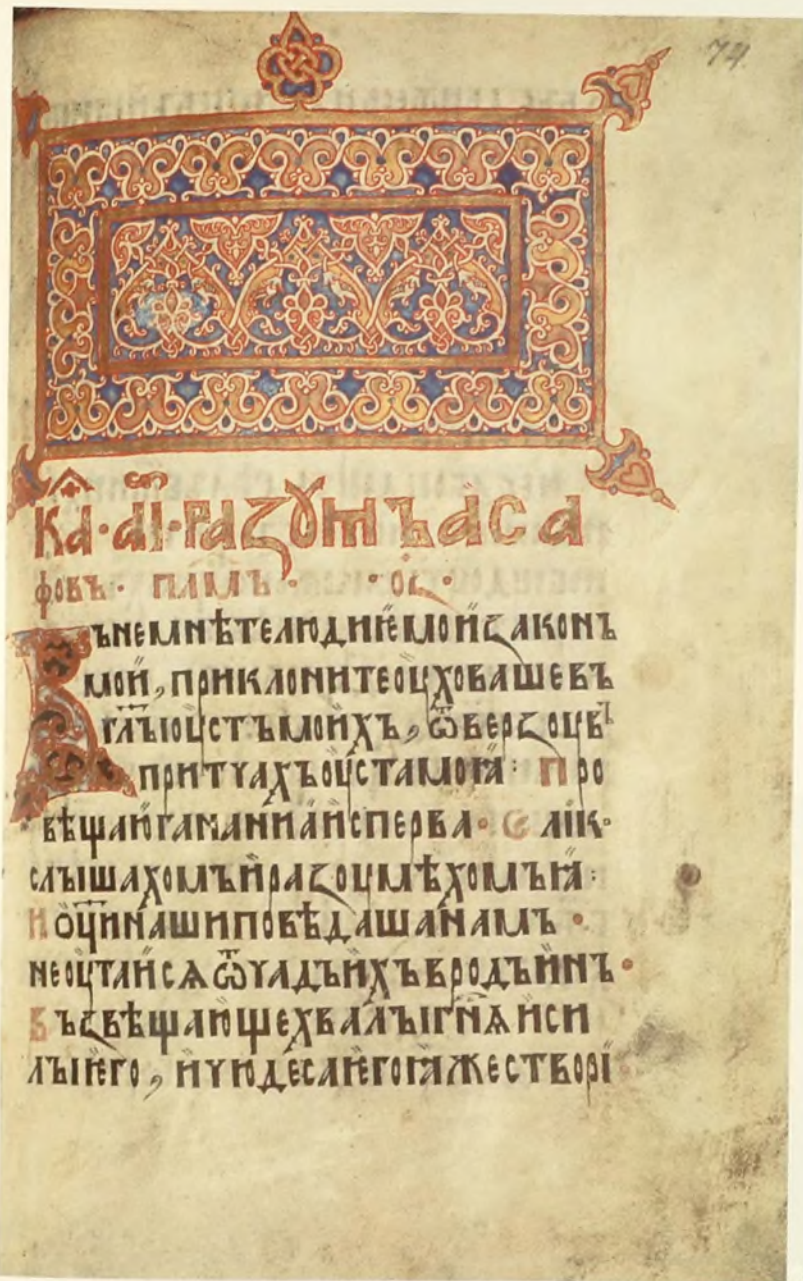 74
Ка҃·аі҃·разꙋмъаса
фовъ· п҃лмъ· ·о҃з·
Вънемлѣтелюдиѥмоиꙁаконъ
мои, приклонитеоухова­шевъ
гл҃ыоустъмоихъ, ѿверꙁоувъ
притчахъоустамоꙗ: про
вѣщаюгананиꙗисперва· Єлік·
слышахомъираꙁоумѣхомъꙗ:
иоц҃инашиповѣдашанам·
неоутаисѧѿчадъихъвродъинъ·
Въꙁвѣщающехвалыгн҃ѧиси
лыѥго, ичюдесаѥгоꙗжестворі